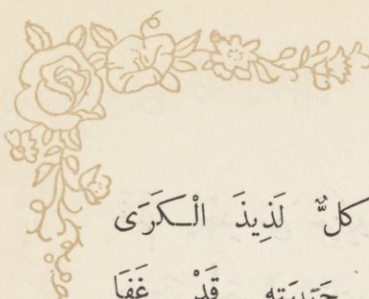 كلٌّ لَذِيذَ الْكَرَى
قَدْ غَفَا